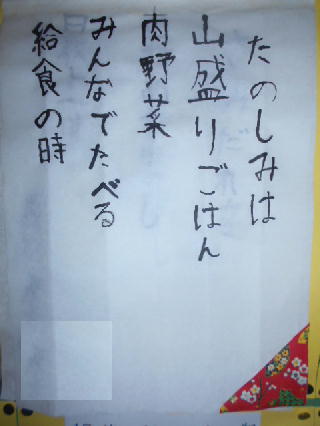 たのしみは
山盛りごはん
肉野菜
みんなでたべる
給食の時